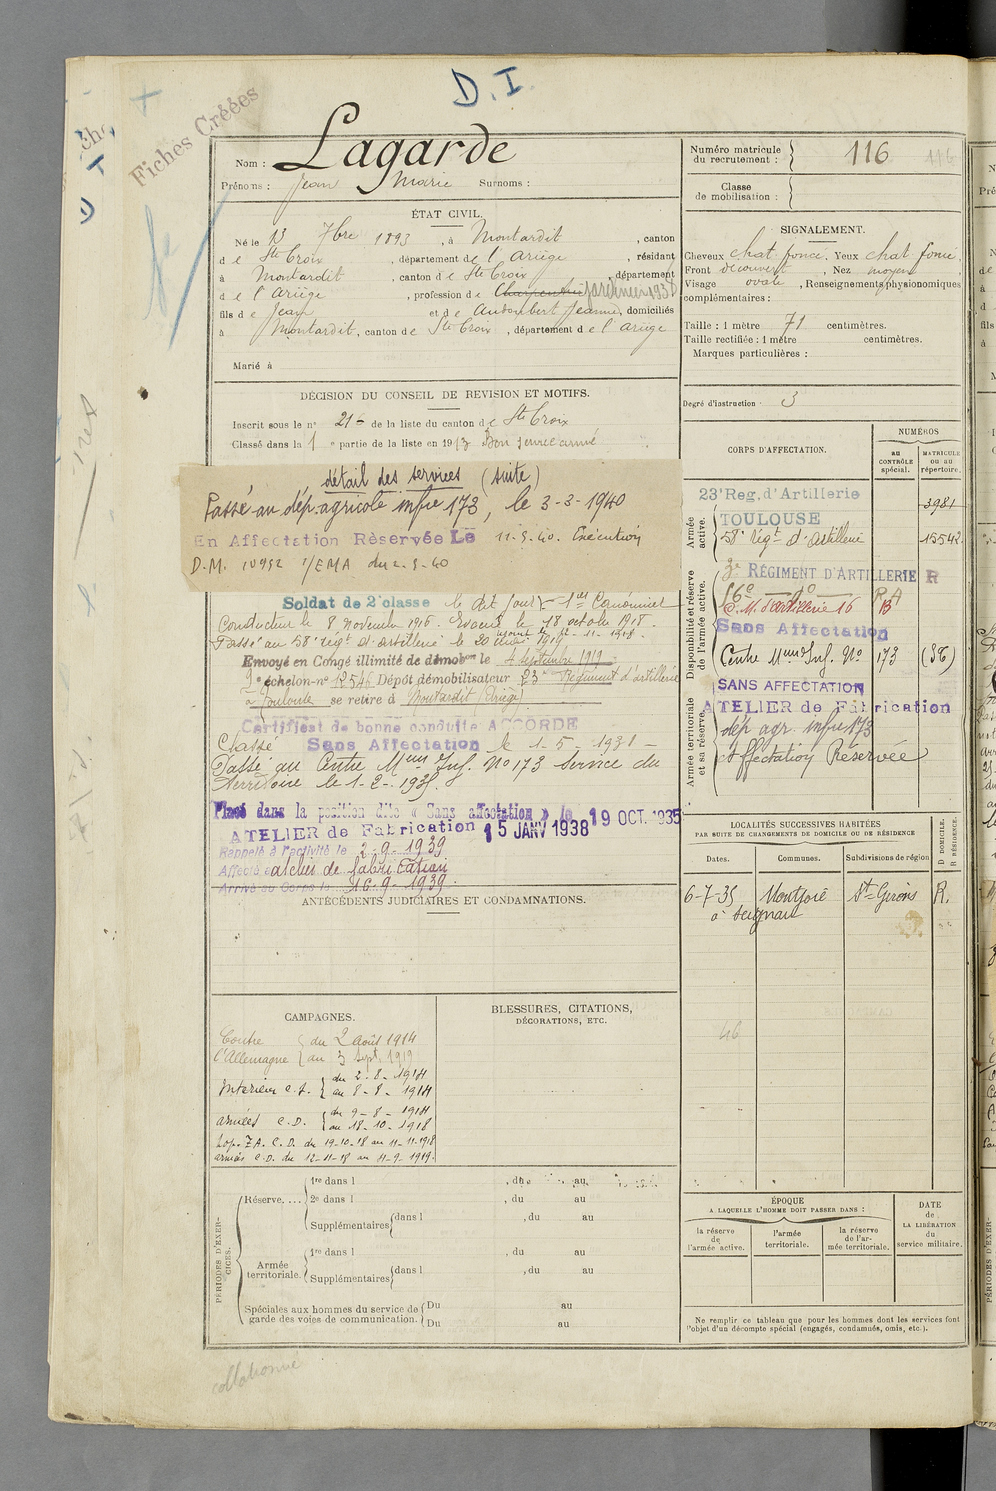 D.I
Fiches Créées
Nom : Lagarde
Prénoms : Jean Marie Surnoms :
Numéro matricule du recrutement : 116
Classe de mobilisation :
ÉTAT CIVIL.
Né le 13 7bre 1893, à Montardit, canton
d e Ste Croix, département de l'Ariège, résidant
à Montardit, canton de Ste Croix, département
d e l'Ariège, profession de Charpentier jardinier 193
fils de Jean et de Audoubert Jeanne, domiciliés
à Montardit, canton de Ste Croix, département de l'Ariège
Marié à
SIGNALEMENT.
Cheveux chat foncé, Yeux chat foncé,
Front découvert, Nez moyen,
Visage ovale, Renseignements physionomiques
complémentaires :
Taille : 1 mètre 71 centimètres.
Taille rectifiée : 1 mètre centimètres.
Marques particulières :
Degré d'instruction 3
DÉCISION DU CONSEIL DE REVISION ET MOTIFS.
Inscrit sous le n° 21 de la liste du canton de Ste Croix
Classé dans la 1e partie de la liste en 1913 Bon service armé
détail des services (suite)
Passé au dép. agricole infie 173, le 3-3-1940
En Affectation Rèservée Le 11.5.40. Exécution
D.M. 10952 1/EMA du 2.5.40
Soldat de 2e classe le dit jour 1er Canonnier
Conducteur le 8 Novembre 1916. Evacué le 18 octobre 1918.
Passé au 58e régt d'artillerie le 20
Envoyé en Congé illimité de démobon le 4 septembre 1919
9e échelon n° 12546 Dépôt démobilisateur 23e Régiment d'artillerie
à Toulouse se retire à Montardit (Ariège)
Certificat de bonne conduite ACCORDÉ
Classé Sans Affectation le 1-5-1931
Passé au Centre Mum Inf. No 173 service du
Territoire le 1-2-1935.
Placé dans la position dite « Sans affectation » le 19 OCT. 1935
ATELIER de Fabrication 15 JANV 1938
Rappelé à l'activité le 2-9-1939
Affecté atelier de fabrication
Arrivé au Corps le 16-9-1939.
CORPS D'AFFECTATION.
NUMÉROS
AU CONTRÔLE spécial.
MATRICULE OU AU répertoire.
Armée active.
23e Reg. d'Artillerie 3981
TOULOUSE
58e régt d'artillerie 15542
Disponibilité et réserve de l'armée active.
3e RÉGIMENT D'ARTILLERIE R
16e d° RA
C.M. d'artillerie 16 B
Sans Affectation
Centre Mum Inf. No 173
Armée territoriale et sa réserve.
SANS AFFECTATION
ATELIER de Fabrication
dép agr. infie 173
Affectation Réservée
LOCALITÉS SUCCESSIVES HABITÉES
PAR SUITE DE CHANGEMENTS DE DOMICILE OU DE RÉSIDENCE
Dates. Communes. Subdivisions de région D DOMICILE. R RÉSIDENCE.
6-7-35 Montjoie St-Girons R.
à Seignan
46
ANTÉCÉDENTS JUDICIAIRES ET CONDAMNATIONS.
CAMPAGNES.
Contre l'Allemagne { du 2 août 1914
au 3 sept. 1919
Intérieur C.S. { du 2-8-1914
au 8-8-1914
armées C.D. { du 9-8-1914
au 18-10-1918
hop. Z.A. C.D. du 19-10-18 au 11-11-1918
armées C.D. du 12-11-18 au 4-9-1919.
BLESSURES, CITATIONS,
DÉCORATIONS, ETC.
PÉRIODES D'EXERCICES.
Réserve....
1re dans l , du au
2e dans l , du au
Supplémentaires dans l , du au
Armée territoriale.
1re dans l , du au
Supplémentaires dans l , du au
Spéciales aux hommes du service de garde des voies de communication. Du au
Du au
ÉPOQUE
A LAQUELLE L'HOMME DOIT PASSER DANS :
la réserve de l'armée active.
l'armée territoriale.
la réserve de l'armée territoriale.
DATE de LA LIBÉRATION du service militaire.
Ne remplir ce tableau que pour les hommes dont les services font
l'objet d'un décompte spécial (engagés, condamnés, omis, etc.).
collationné